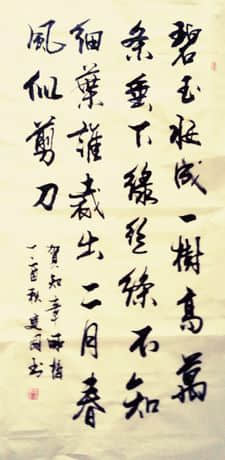 碧玉妝成一樹高萬
条垂下綠絲絛不知
細葉誰裁出二月春
風似剪刀
賀知章詠柳
丁酉秋